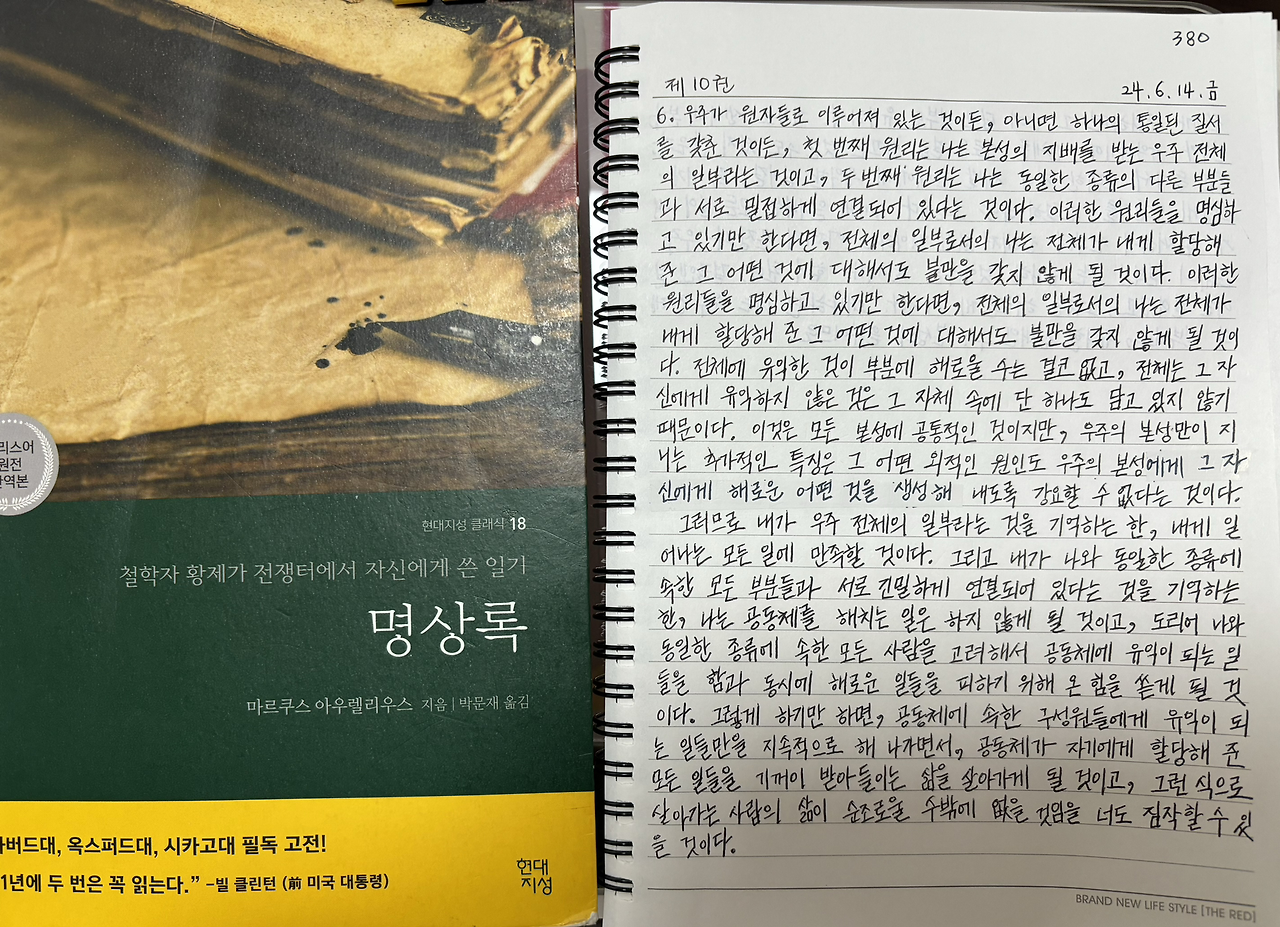 리스어
원전
완역본
현대지성 클래식 18
철학자 황제가 전쟁터에서 자신에게 쓴 일기
명상록
마르쿠스 아우렐리우스 지음 | 박문재 옮김
하버드대, 옥스퍼드대, 시카고대 필독 고전!
1년에 두 번은 꼭 읽는다.” –빌 클린턴 (前 미국 대통령)
현대
지성
380
제 10권 24.6.14.금
6. 우주가 원자들로 이루어져 있는 것이든, 아니면 하나의 통일된 질서
를 갖춘 것이든, 첫 번째 원리는 나는 본성의 지배를 받는 우주 전체
의 일부라는 것이고, 두 번째 원리는 나는 동일한 종류의 다른 부분들
과 서로 밀접하게 연결되어 있다는 것이다. 이러한 원리들을 명심하
고 있기만 한다면, 전체의 일부로서의 나는 전체가 내게 할당해
준 그 어떤 것에 대해서도 불만을 갖지 않게 될 것이다. 이러한
원리들을 명심하고 있기만 한다면, 전체의 일부로서의 나는 전체가
내게 할당해 준 그 어떤 것에 대해서도 불만을 갖지 않게 될 것이
다. 전체에 유익한 것이 부분에 해로울 수는 결코 없고, 전체는 그 자
신에게 유익하지 않은 것은 그 자체 속에 단 하나도 담고 있지 않기
때문이다. 이것은 모든 본성에 공통적인 것이지만, 우주의 본성만이 지
니는 추가적인 특징은 그 어떤 외적인 원인도 우주의 본성에게 그 자
신에게 해로운 어떤 것을 생성해 내도록 강요할 수 없다는 것이다.
그러므로 내가 우주 전체의 일부라는 것을 기억하는 한, 내게 일
어나는 모든 일에 만족할 것이다. 그리고 내가 나와 동일한 종류에
속한 모든 부분들과 서로 긴밀하게 연결되어 있다는 것을 기억하는
한, 나는 공동체를 해치는 일은 하지 않게 될 것이고, 도리어 나와
동일한 종류에 속한 모든 사람을 고려해서 공동체에 유익이 되는 일
들을 함과 동시에 해로운 일들을 피하기 위해 온 힘을 쏟게 될 것
이다. 그렇게 하기만 하면, 공동체에 속한 구성원들에게 유익이 되
는 일들만을 지속적으로 해 나가면서, 공동체가 자기에게 할당해 준
모든 일들을 기꺼이 받아들이는 삶을 살아가게 될 것이고, 그런 식으로
살아가는 사람의 삶이 순조로울 수밖에 없을 것임을 너도 짐작할 수 있
을 것이다.
BRAND NEW LIFE STYLE [THE RED]